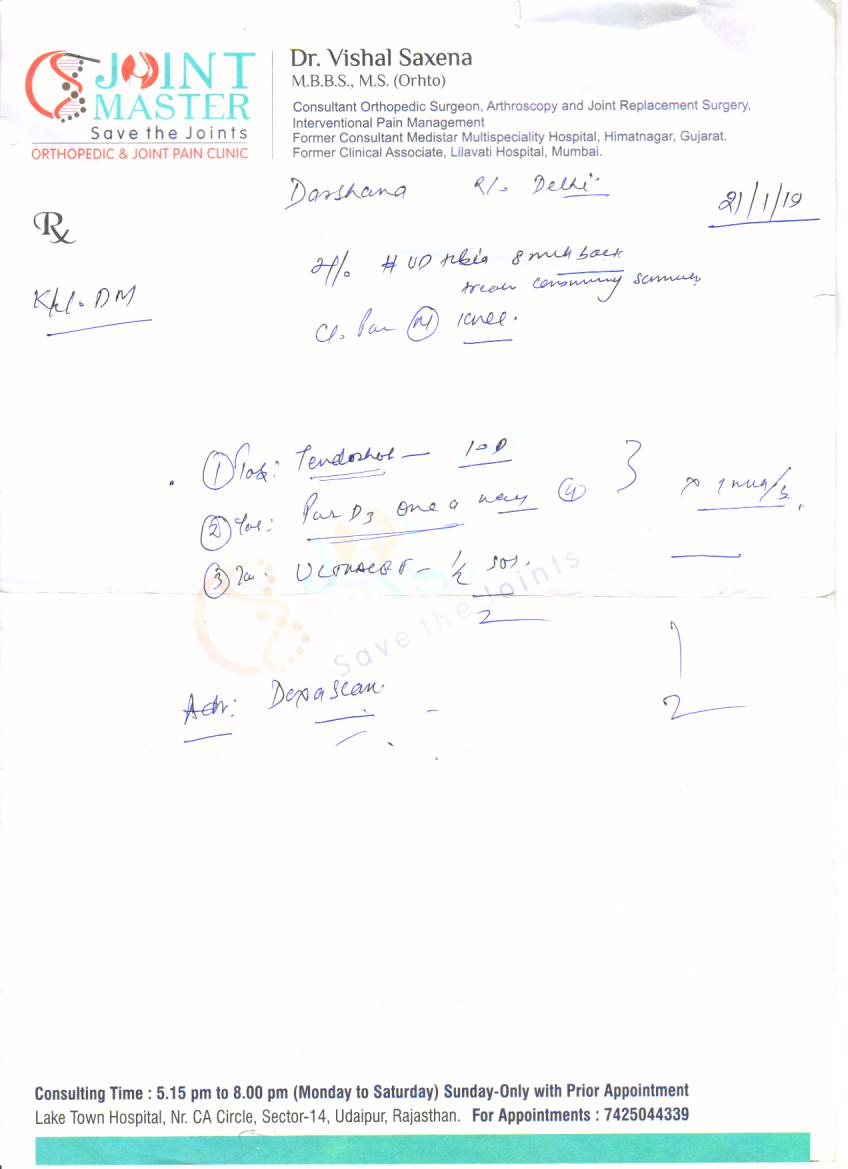 JOINT
MASTER
Save the Joints
ORTHOPEDIC & JOINT PAIN CLINIC
Dr. Vishal Saxena
M.B.B.S., M.S. (Orhto)
Consultant Orthopedic Surgeon, Arthroscopy and Joint Replacement Surgery,
Interventional Pain Management
Former Consultant Medistar Multispeciality Hospital, Himatnagar, Gujarat.
Former Clinical Associate, Lilavati Hospital, Mumbai.
Darshana R/o Delhi
21/1/19
Rx
# UD back
DM
knee.
① Tendoshot - 1-0D
② D3 one a
③ ULTRACET - 1/2 SOS.
2
Save the Joints
Adv: Dexa scan.
Consulting Time : 5.15 pm to 8.00 pm (Monday to Saturday) Sunday-Only with Prior Appointment
Lake Town Hospital, Nr. CA Circle, Sector-14, Udaipur, Rajasthan. For Appointments : 7425044339